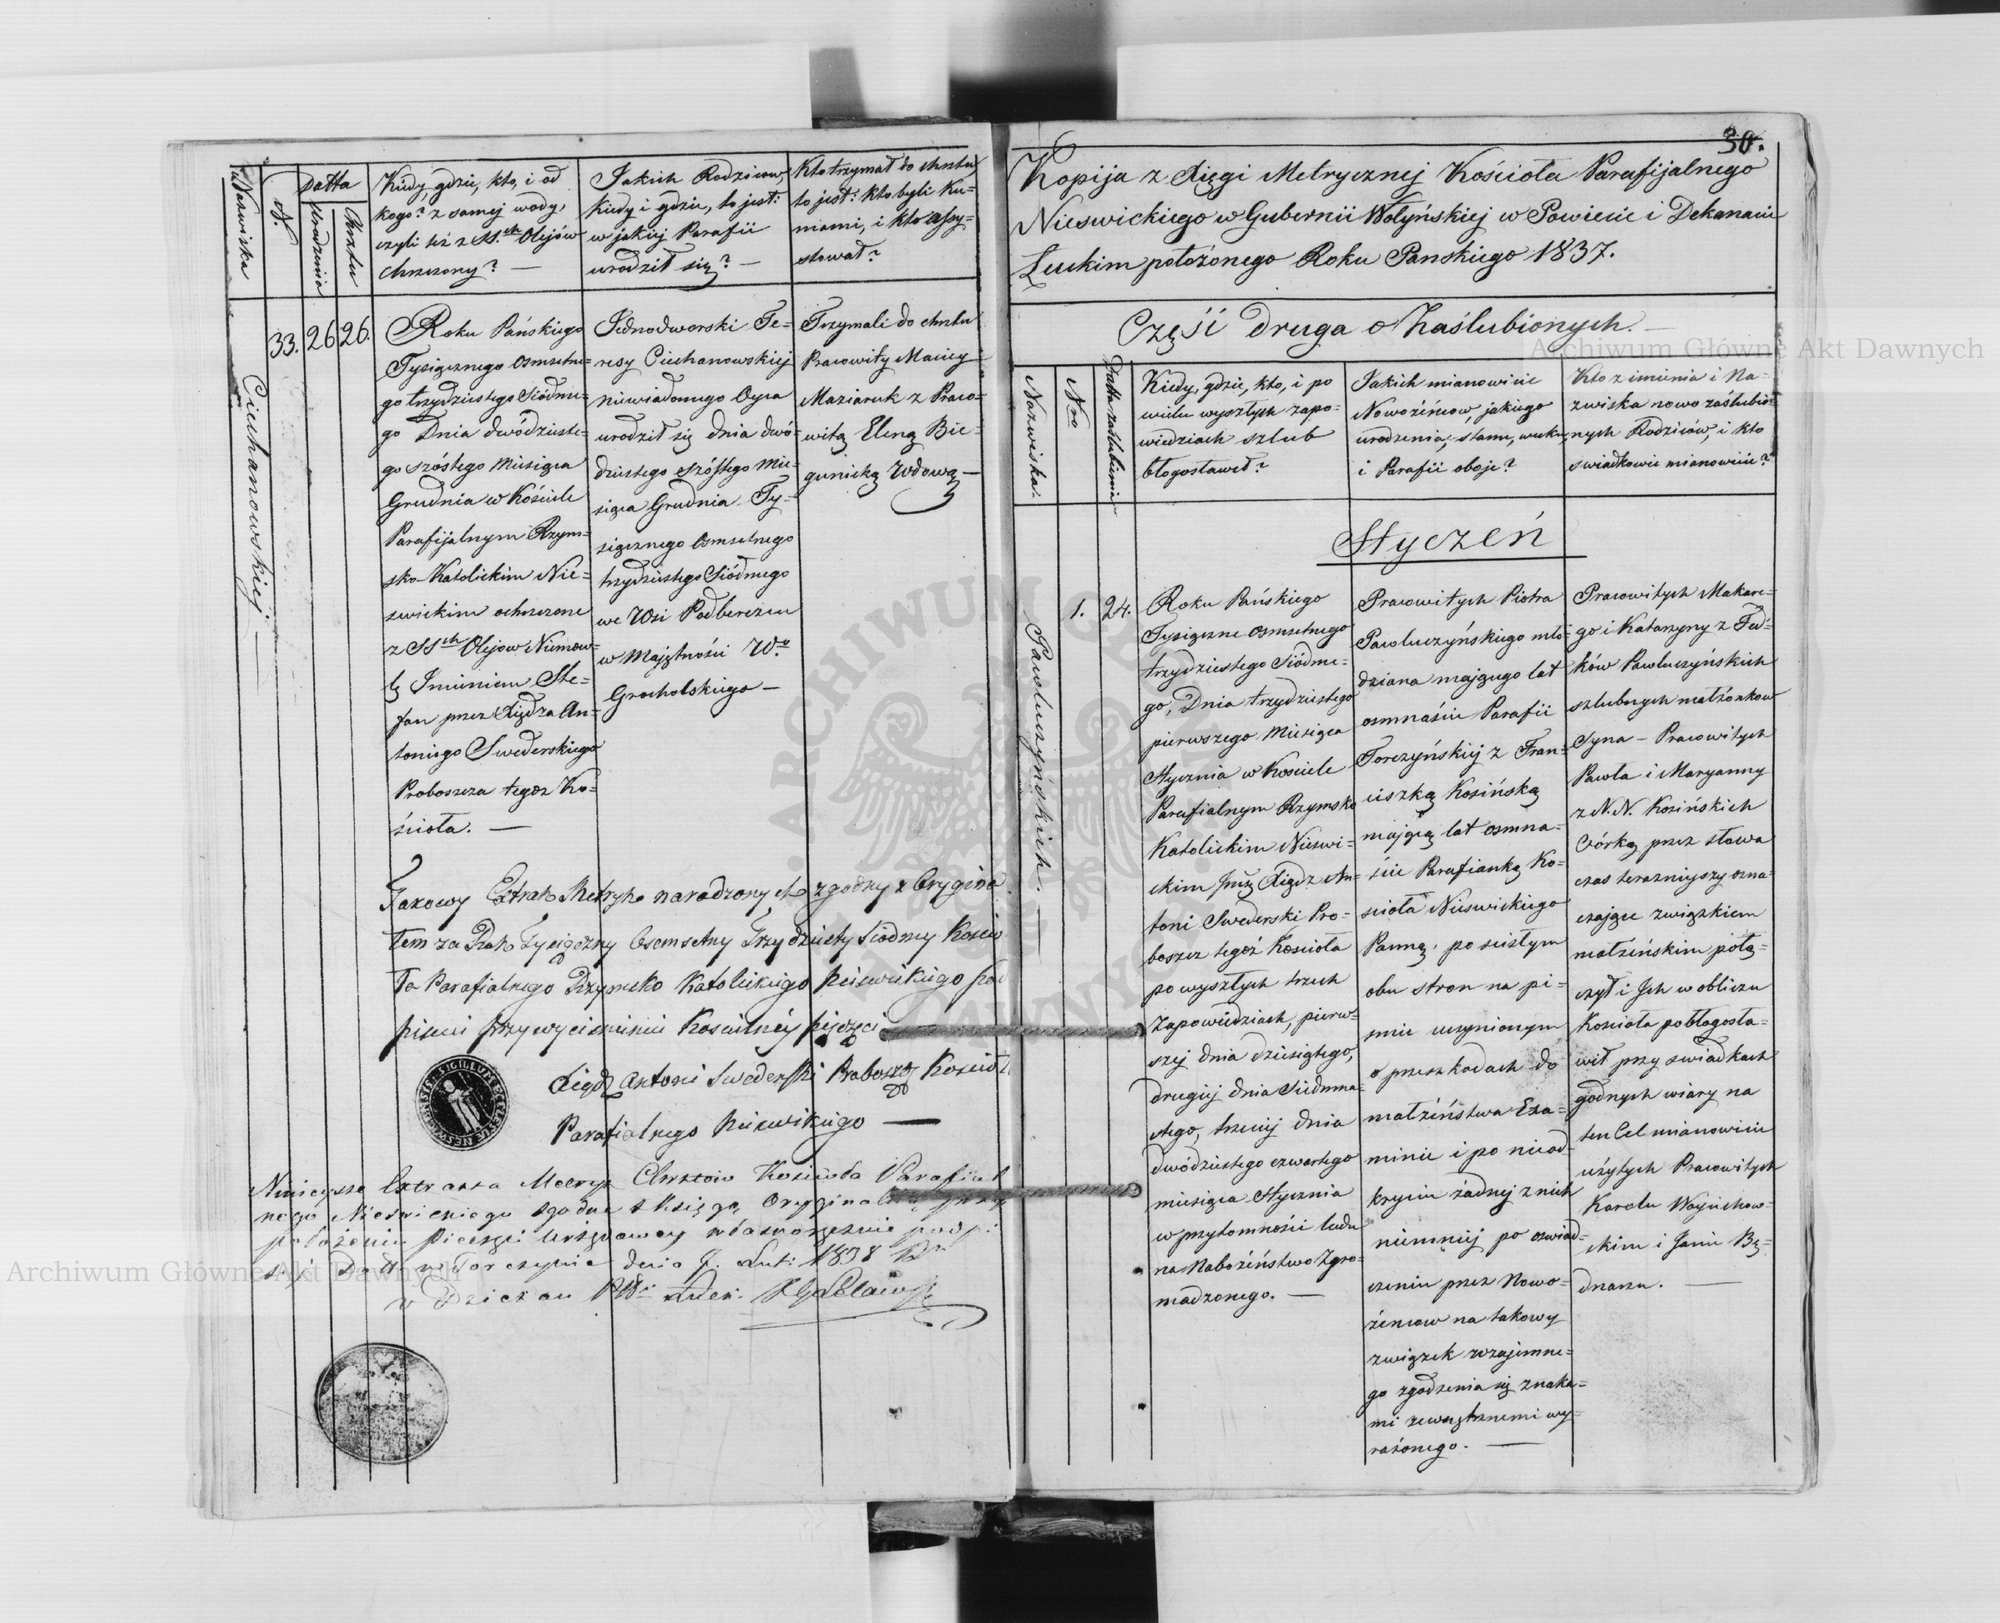 Nazwiska
N.
Datta
Urodzenia
Chrztu
Kiedy, gdzie, kto, i od
kogo? z samej wody,
czyli też z SS.ch Olejów
chrzczony? —
Jakich Rodziców,
kiedy i gdzie, to jest:
w jakiej Parafii
urodził się? —
Kto trzymał do chrztu
to jest: kto byli Ku-
mami, i kto assy-
stował?
Ciechanowskiej —
33.
26
26.
Roku Pańskiego
Tysiącznego osmsetne-
go trzydziestego Siódme-
go Dnia dwódzieste-
go szóstego Miesiąca
Grudnia w Kościele
Parafijalnym Rzym-
sko-Katolickim Nie-
swickim ochrzczone
z SSch Olejow Niemow-
lę Imieniem Ste-
fan przez Xiędza An-
toniego Swederskiego
Proboszcza tegoż Ko-
ścioła. —
Jednodworski Te-
resy Ciechanowskiej
niewiadomego Oyca
urodził się dnia dwó-
dziestego szóstego Mie-
siąca Grudnia Ty-
siącznego Osmsetnego
trzydziestego Siódmego
we Wsi Podberezeu
w Majętności W.o
Grocholskiego —
Trzymali do chrztu
Pracowity Maciey
Maziaruk z Praco-
witą Eleną Bie-
gunicką Wdową —
Takowy Extrakt Metryk narodzonych zgodny z Orygina
łem za Rok Tysiączny Osemsetny Trzydziesty Siódmy Kościo
ła Parafialnego Rzymsko Katolickiego Nieswickiego pod
pisem przy wyciśnieniu Kościelnéy pieczęci —
Xiądz Antoni Swederski Proboszcz Kościoł
Parafialnego Nieswickiego —
SIGILLUM ECCLESIAE NESWICENSIS
Ninieysze Extrakta Metryk Chrztow Kościoła Parafial
nego Nieswickiego zgodne z Księgą Oryginalną przy
położeniu Pieczęci Urzędowey własnoręcznie podpi
Dat w Torczynie dnia J. Lut: 1838 Rdu
Dziekan
30.
Kopija z Xięgi Metrycznej Kościoła Parafijalnego
Nieswickiego w Gubernii Wołyńskiej w Powiecie i Dekanacie
Łuckim położonego Roku Panskiego 1837.
Część Druga o Zaślubionych. —
Nazwiska.
Nro
Datta zaślubienia
Kiedy, gdzie, kto, i po
wielu wyszłych zapo-
wiedziach szlub
błogosławił?
Jakich mianowicie
Nowożeńcow, jakiego
urodzenia, stanu, wieku,
i Parafii oboje?
Kto z imienia i Na-
zwiska nowo zaślubio-
nych Rodziców, i kto
swiadkowie mianowicie?
Styczeń
Pawluczyńskich. —
1.
24.
Roku Pańskiego
Tysiączne osmsetnego
trzydziestego Siódme-
go, Dnia trzydziestego
pierwszego Miesiąca
Stycznia w Kosciele
Parafialnym Rzymsko
Katolickim Nieswi-
ckim Jmć Xiądz An-
toni Swederski Pro-
boszcz tegoż Kościoła
po wyszłych trzech
Zapowiedziach, pierw-
szej dnia dziesiątego,
drugiej dnia Siedmna-
stego, trzeciej dnia
dwódziestego czwartego
miesiąca Stycznia
w przytomności ludu
na Nabożeństwo Zgro-
madzonego. —
Pracowitych Piotra
Pawluczyńskiego mło-
dziana mającego lat
osmnaście Parafii
Torczyńskiej z Fran-
ciszką Kosińską
mającą lat osmna-
ście Parafianką Ko-
scioła Nieswickiego
Panną, po scisłym
obu stron na pi-
smie uczynionym
o przeszkodach do
małżeństwa Exa-
minie i po nieod-
kryciu żadnej z nich
niemniej po oswiad-
czeniu przez Nowo-
żeńcow na takowy
związek wzajemne-
go zgodzenia się znaka-
mi zewnętrznemi wy-
rażonego. —
Pracowitych Makare-
go i Katarzyny z Fed-
ków Pawluczyńskich
szlubnych małżonkow
Syna — Pracowitych
Pawła i Maryanny
z N. N. Kosińskich
Córką przez słowa
czas terazniejszy ozna-
czające związkiem
małżeńskim połą-
czył i Ich w obliczu
Kościoła pobłogosła-
wił przy swiadkach
godnych wiary na
ten Cel mianowicie
użytych Pracowitych
Karolu Woyciechow-
skim i Janie Bę-
dnarzu. —
Archiwum Główne Akt Dawnych
Archiwum Główne Akt Dawnych